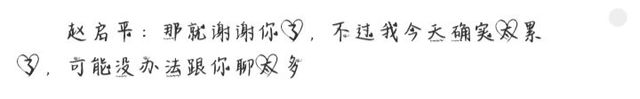 赵启平：那就谢谢你了，不过我今天确实太累
了，可能没办法跟你聊太多